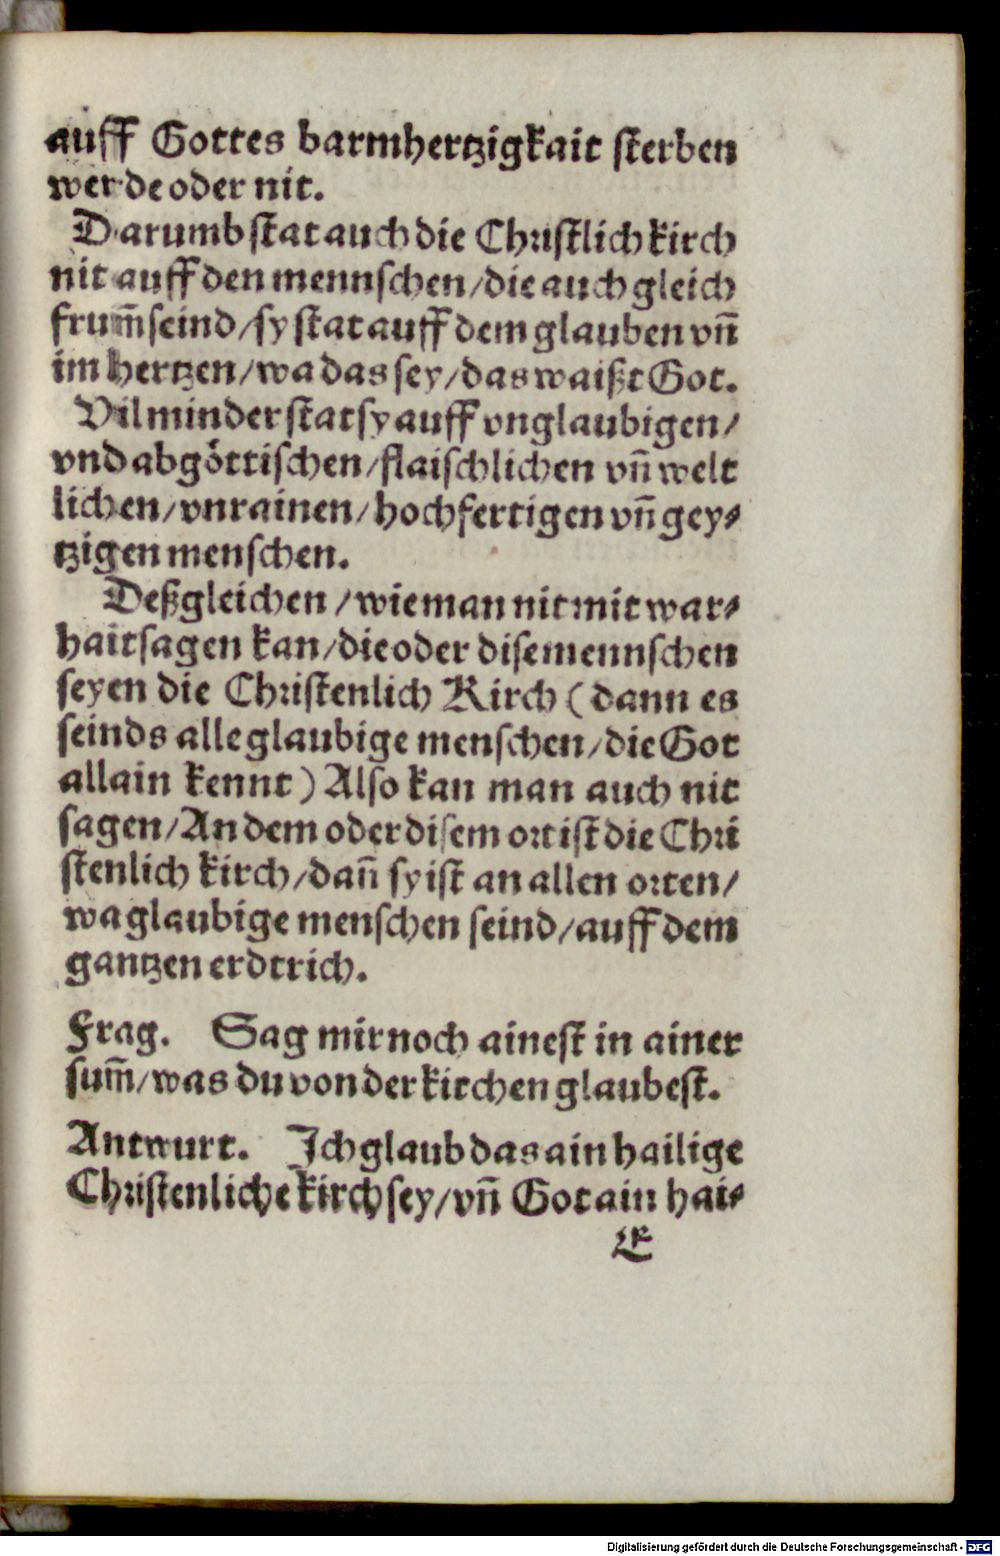 auff Gottes barmhertzigkait sterben
werde oder nit.
Darumb stat auch die Christlich kirch
nit auff den mennschen/die auch gleich
frum̃ seind/sy stat auff dem glauben vñ
im hertzen/wa das sey/das waißt Got.
Vil minder stat sy auff vnglaubigen/
vnd abgoͤttischen/flaischlichen vñ welt
lichen/vnrainen/hochfertigen vñ gey⸗
tzigen menschen.
Deßgleichen /wie man nit mit war⸗
hait sagen kan/die oder dise mennschen
seyen die Christenlich Kirch (dann es
seinds alle glaubige menschen/die Got
allain kennt) Also kan man auch nit
sagen/An dem oder disem ort ist die Chri
stenlich kirch/dañ sy ist an allen orten/
wa glaubige menschen seind/auff dem
gantzen erdtrich.
Frag. Sag mir noch ainest in ainer
sum̃/was du von der kirchen glaubest.
Antwurt. Ich glaub das ain hailige
Christenliche kirch sey/vñ Got ain hai⸗
E
Digitalisierung gefördert durch die Deutsche Forschungsgemeinschaft - DFG